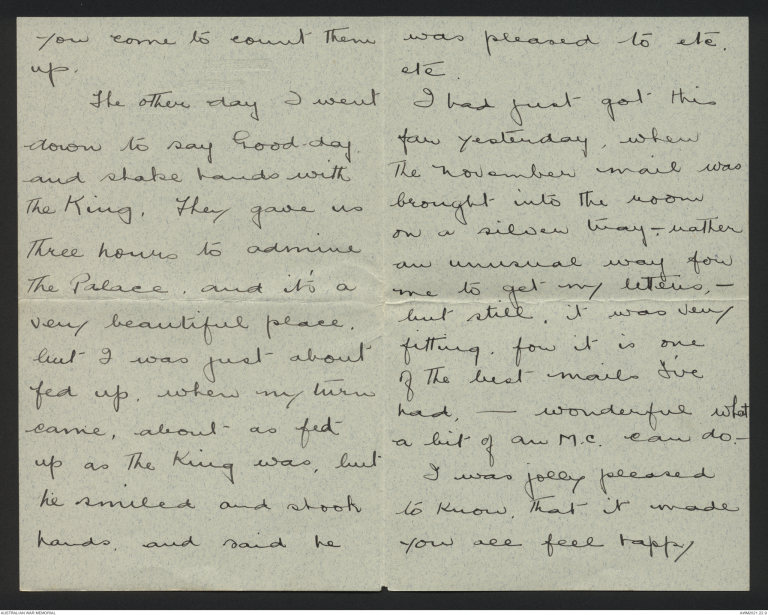 you come to count them
up.
The other day I went
down to say Good-day.
and shake hands with
the King. They gave us
three hours to admire
the Palace, and it's a
very beautiful place,
but I was just about
fed up, when my turn
came, about as fed
up as the King was, but
he smiled and shook
hands, and said he
was pleased to etc.
etc.
I had just got this
far yesterday, when
the November mail was
brought into the room
on a silver tray - rather
an unusual way for
me to get my letters, -
but still, it was very
fitting, for it is one
of the best mails I've
had, - wonderful what
a bit of an M.C. can do. -
I was jolly pleased
to know, that it made
you all feel happy
AUSTRALIAN WAR MEMORIAL